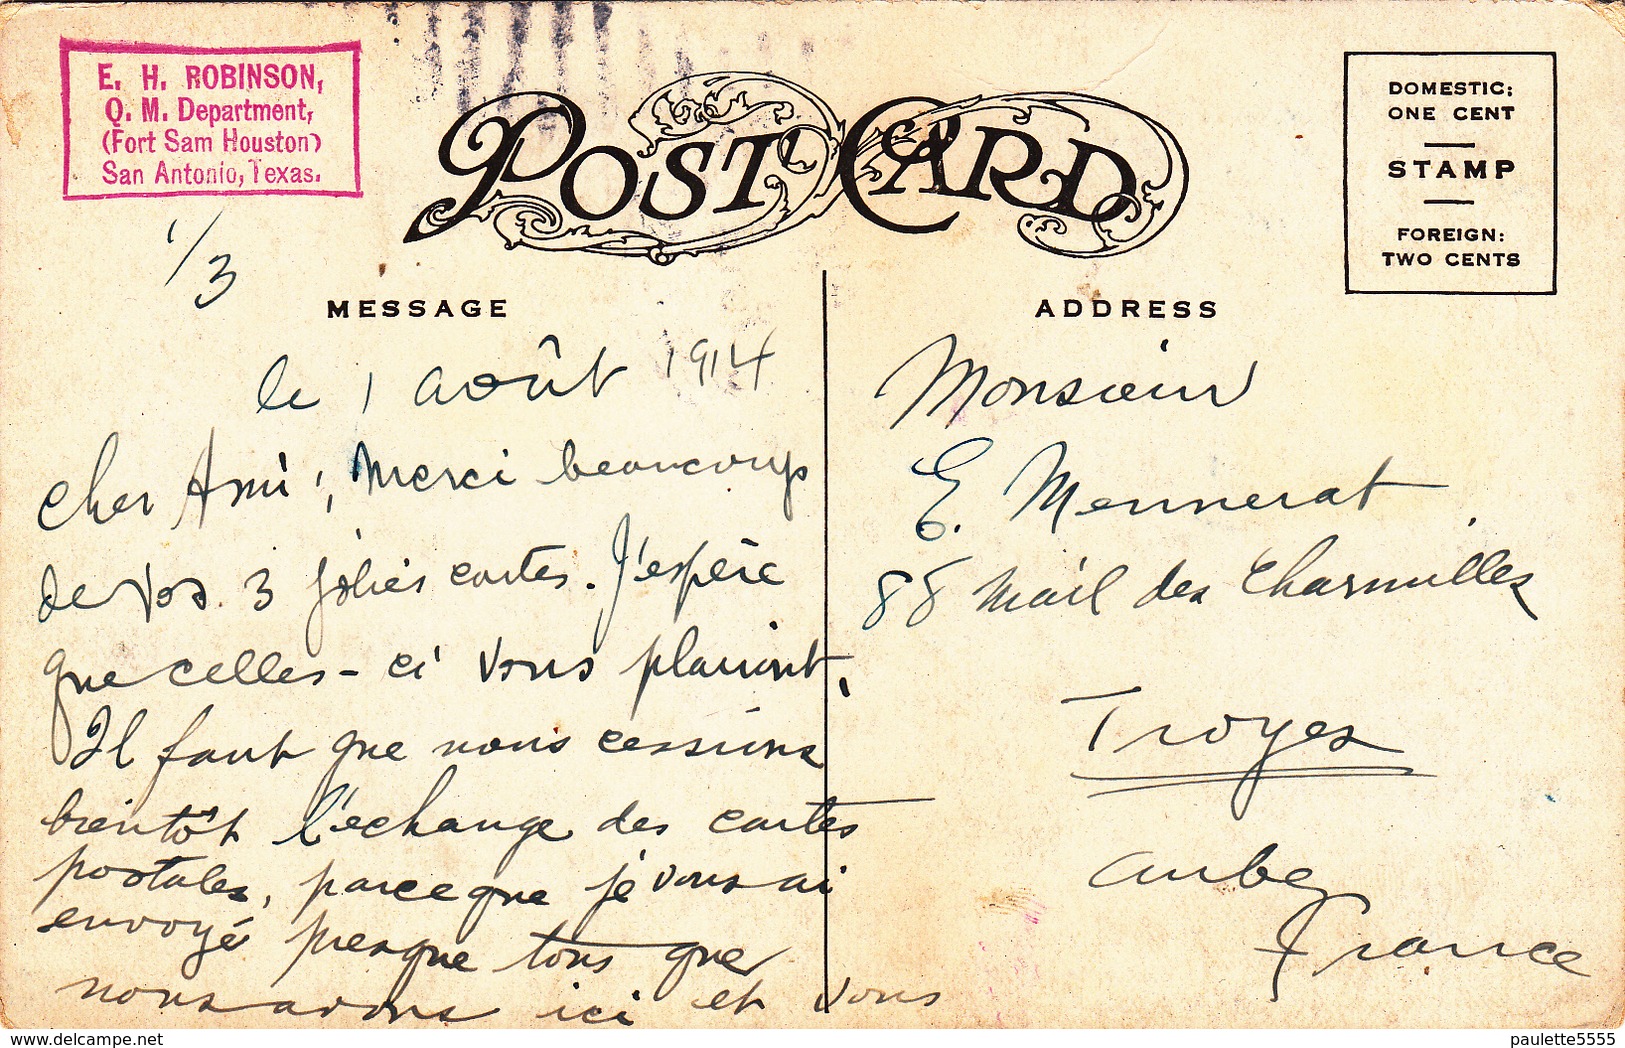 E. H. ROBINSON,
Q. M. Department,
(Fort Sam Houston)
San Antonio, Texas.
POST CARD
DOMESTIC:
ONE CENT
STAMP
FOREIGN:
TWO CENTS
1/3
MESSAGE
le 1 août 1914
Cher Ami, Merci beaucoup
de vos 3 jolies cartes. J'espère
que celles-ci vous plairont.
Il faut que nous cessions
bientôt l'échange des cartes
postales, parceque je vous ai
envoyé presque tous que
nous avons ici et vous
ADDRESS
Monsieur
E. Mennerat
88 Mail des Charmilles
Troyes
Aube
France
paulette5555